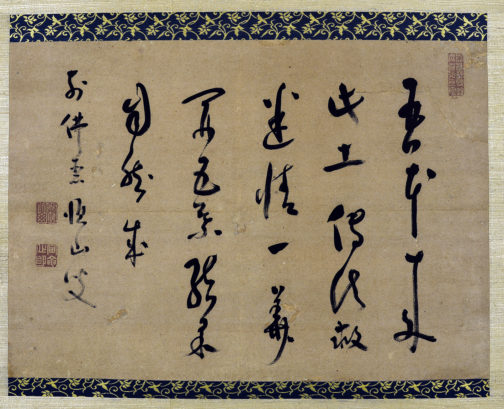 吾本来
此土傳法救
迷情一華
開五葉結果
自然成
山叟